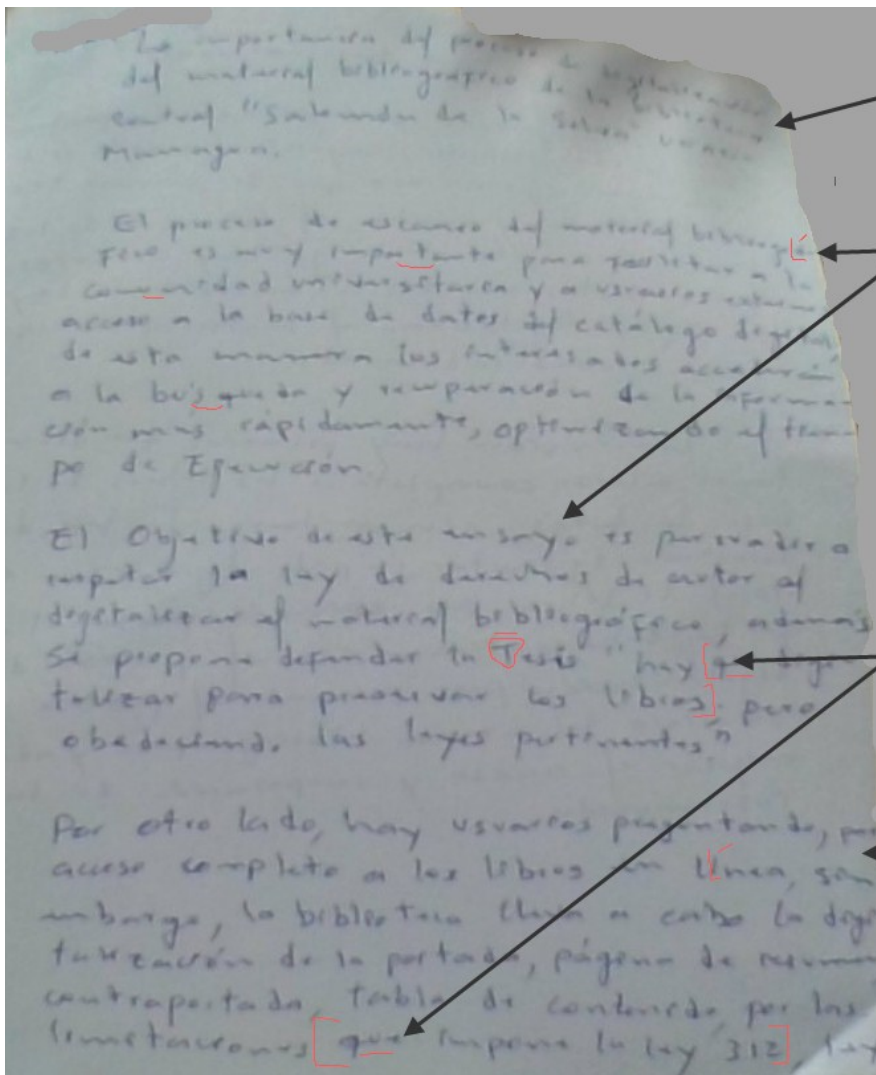 La importancia del proceso de digitalización
del material bibliográfico de la biblioteca
central "Salomón de la Selva"
Managua.
El proceso de escaneo del material bibliográ
fico es muy importante para facilitar a la
comunidad universitaria y a usuarios externos
acceso a la base de datos del catálogo digital,
de esta manera los interesados accederán
a la búsqueda y recuperación de la informa
ción más rápidamente, optimizando el tiem
po de Ejecución.
El Objetivo de este ensayo es persuadir a
respetar la ley de derechos de autor al
digitalizar el material bibliográfico, además
Se propone defender la Tesis "hay q digi
talizar para preservar los libros, pero
obedeciendo las leyes pertinentes"
Por otro lado, hay usuarios preguntando, por
acceso completo a los libros en línea, sin
embargo, la biblioteca lleva a cabo la digi
talización de la portada, página de resumen
contraportada, tabla de contenido, por las
limitaciones que impone la ley 312, ley